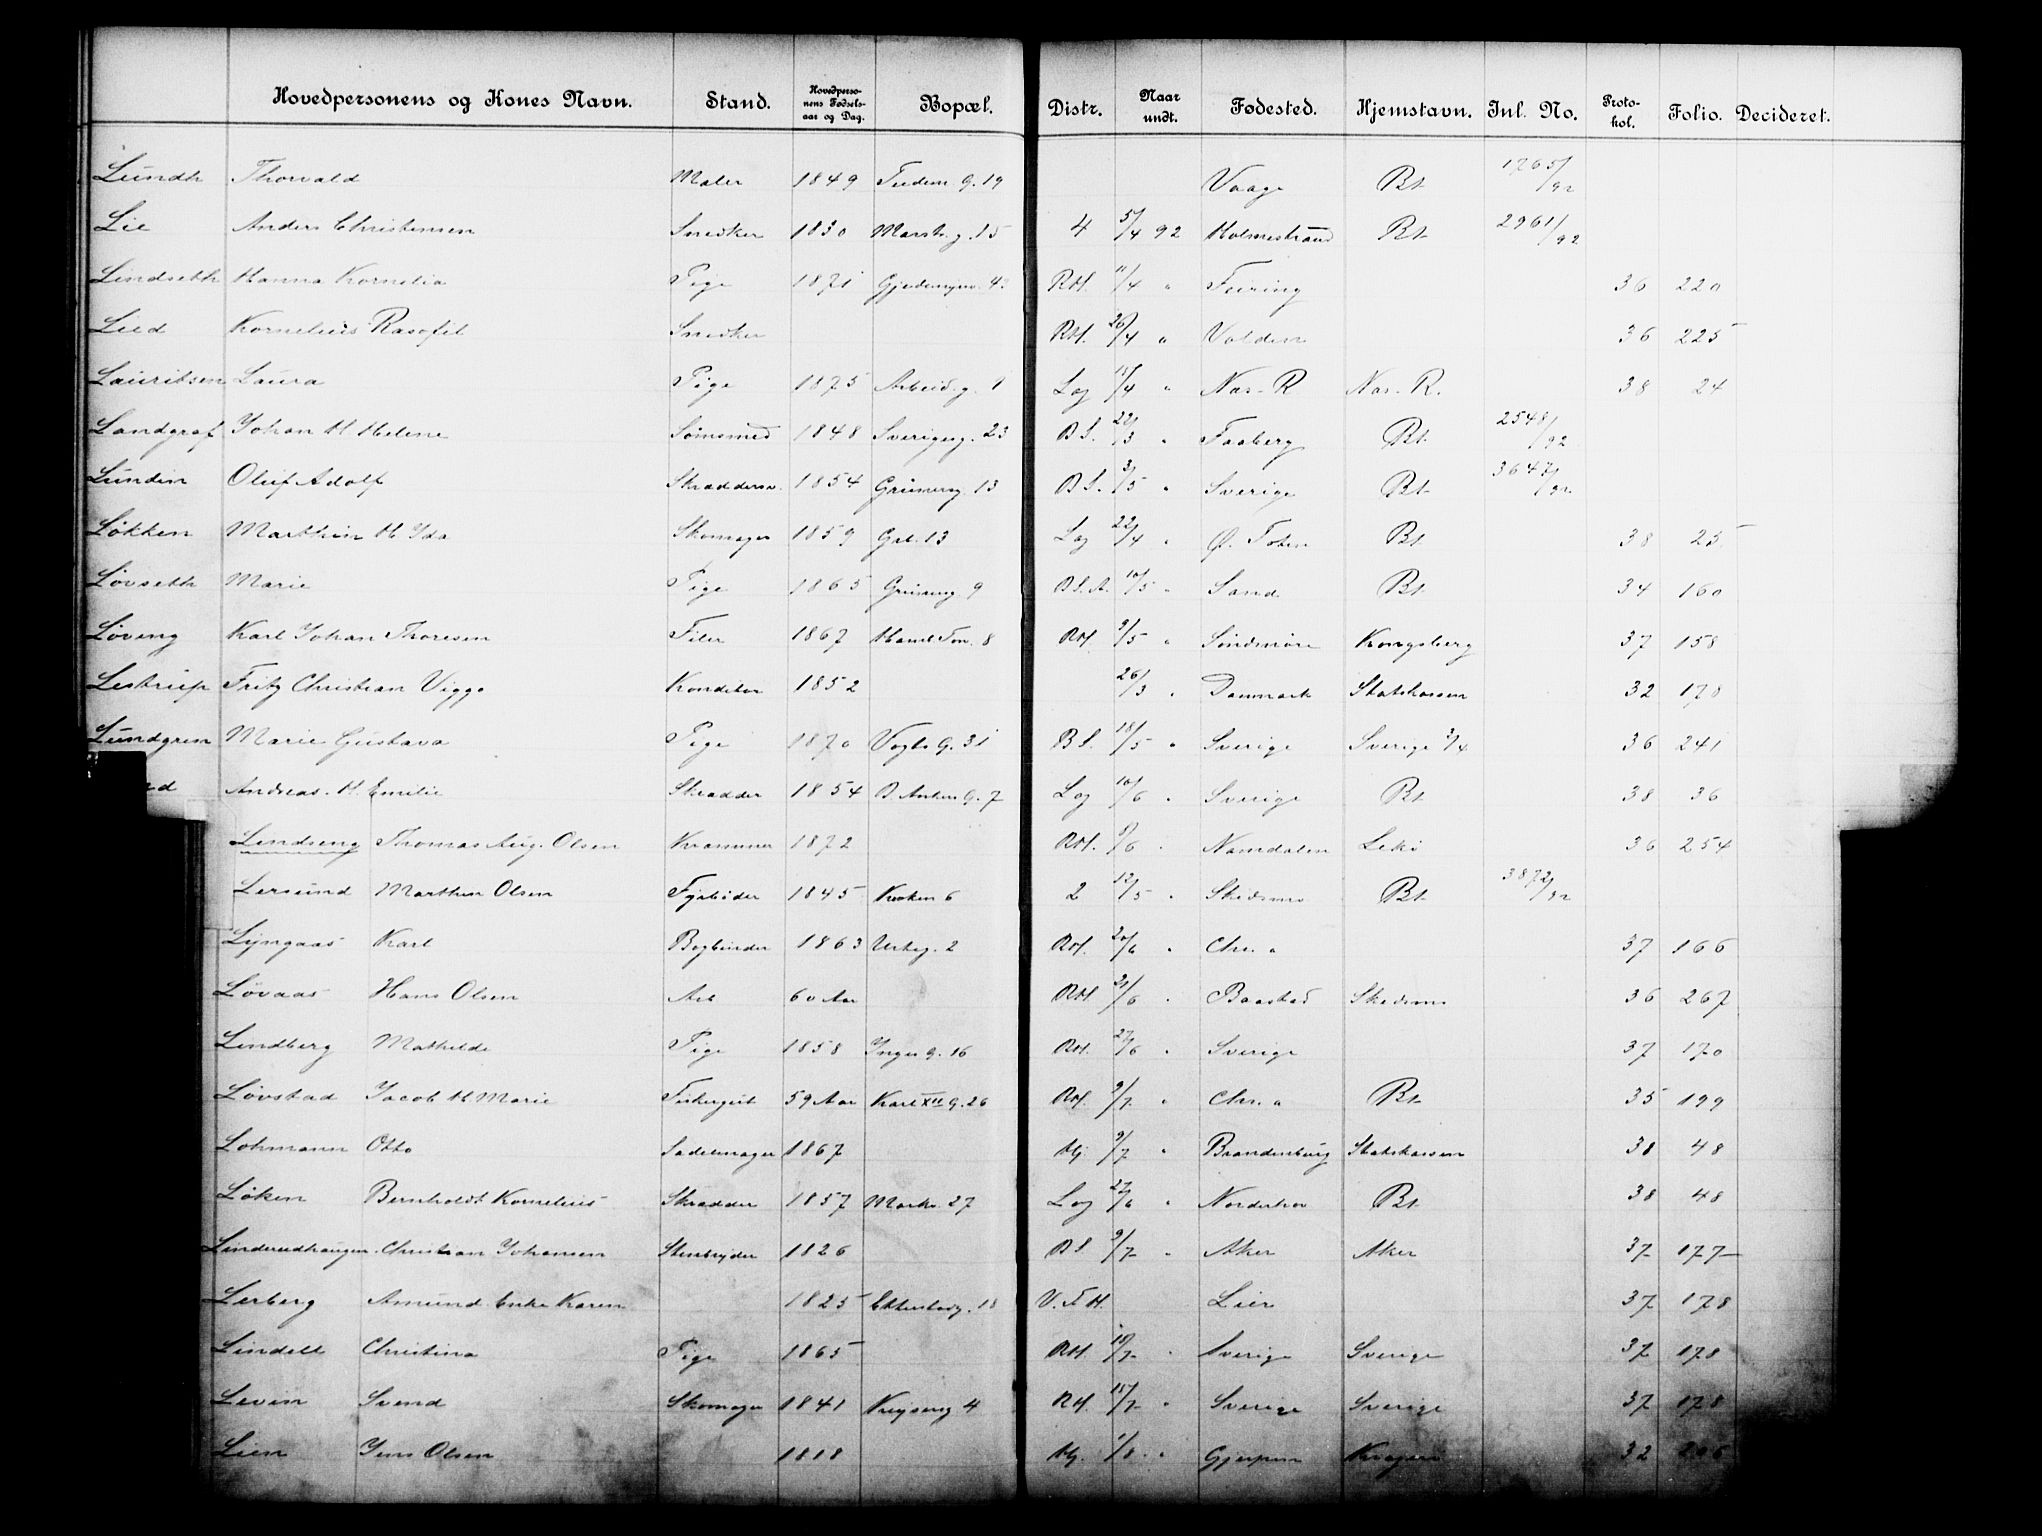 Hovedpersonens og Kones Navn. Stand. Hovedpersonens Fødselsaar og Dag. Bopæl. Distr. Naar undt. Fødested. Hjemstavn. Inl. No. Protokol. Folio. Decideret.
Lundh Thorvald Maler 1849 G. 19 Vaage Bt 1765/92
Lie Anders Christensen Snedker 1830 Markv.g. 15 4 5/4 92 Holmestrand Bt 2961/92
Lindseth Hanna Kornelia Pige 1871 RH. 11/4 " Feiring 36 220
Lied Kornelius Rasofil Snedker RH. 26/4 " Volden 36 225
Lauritsen Laura Pige 1875 Arbeid.g. 1 Lag 11/4 " Nas-R Nas-R. 38 24
Landgraf Johan H Helene Sømsmed 1848 Sverigesg. 23 B S. 22/3 " Faaberg Bt 2548/92
Lundin Oluf Adolf Skrædders. 1854 Grünerg. 13 B S. 3/5 " Sverige Bt 3647/92
Løkken Marthin H Ida Skomager 1859 Gal. 13 Lag 22/4 " Ø. Toten Bt 38 25
Løvseth Marie Pige 1865 Grünerg 9 B S. A. 10/5 " Sand Bt 34 160
Løveng Karl Johan Thoresen Filer 1867 8 RH. 9/5 " Søndmøre Kongsberg 37 158
Lestrup Fritz Christian Viggo Konditor 1852 26/3 " Danmark Statskassen 32 178
Lundgren Marie Gustava Pige 1870 Vogts G. 31 B S. 18/5 " Sverige Sverige 3/4 36 241
nd Andreas. H. Emilie Skrædder 1854 B. Ankers G. 7 Lag 10/6 " Sverige Bt 38 36
Lindseng Thomas Aug. Olsen Kræmmer 1872 RH. 9/6 " Namdalen Lekø 36 254
Lersund Marthin Olsen Fyrbøder 1845 6 2 12/5 " Skedsmo Bt 3872/92
Lyngaas Karl Bogbinder 1863 Urteg. 2 RH. 20/6 " Chr.a 37 166
Løvaas Hans Olsen Arb 60 Aar RH 21/6 " Baastad Skedsmo 36 267
Lindberg Mathilde Pige 1858 Inges G. 16 RH. 27/6 " Sverige 37 170
Løvstad Jacob H Marie 59 Aar Karl XII G. 26 RH. 9/7 " Chr.a Bt 35 199
Lohmann Otto Sadelmager 1867 Hj 9/7 " Brandenburg Statskassen 38 48
Løken Bernholdt Kornelius Skrædder 1857 Markv. 27 Lag 27/6 " Norderhov Bt 38 48
Linderudhaugen Christian Johansen Stenbryder 1826 B S. 9/7 " Aker Aker 37 177
Lerberg Amund. Enke Karen 1825 Ekebergg. 18 V. F H. Lier 37 178
Lindell Christina Pige 1865 RH. 10/7 " Sverige Sverige 37 178
Levin Svend Skomager 1841 4 RH. 15/7 " Sverige Sverige 37 178
Lien Jens Olsen 1818 Hj. 1/8 " Gjerpen Kragerø 32 206